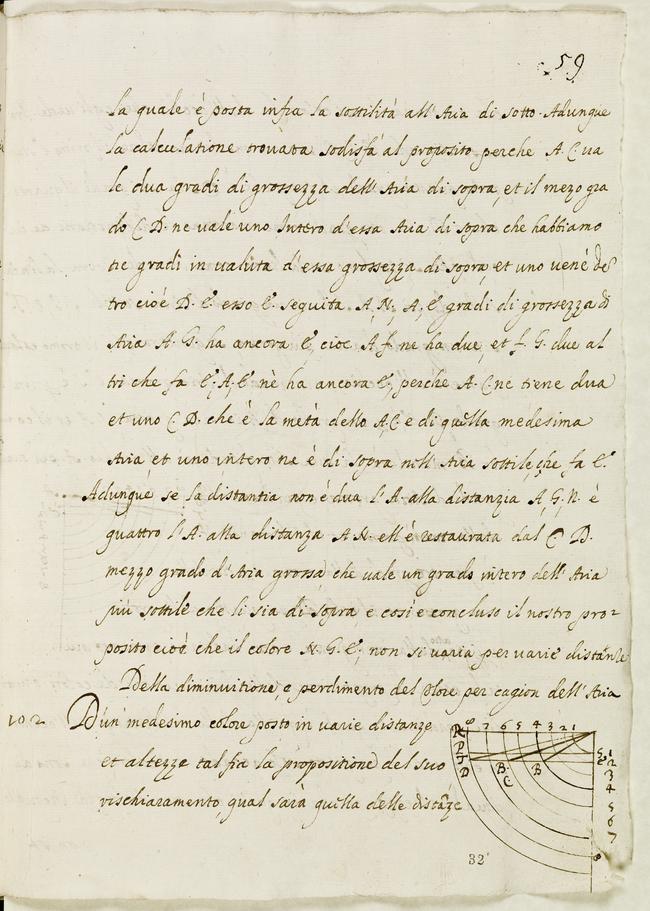 59
la quale è posta infra la sottilità all'Aria di sotto. Adunque
la calculatione trovata sodisfà al proposito perche A.C. va
le dua gradi di grossezza dell'Aria di sopra, et il mezo gra
do C.D. ne vale uno Intero d'essa Aria di sopra che habbiamo
tre gradi in valuta d'essa grossezza di sopra, et uno ven'è de
tro cioè D.E. esso E. seguita A,N, A,E gradi di grossezza di
Aria A.G. ha ancora E, cioè A f. ne ha due, et f.G. due al
tri che fa E. A,E nè ha ancora E, perchè A.C. ne tiene dua
et uno C.D. che è la metà dello A,C. e di quella medesima
Aria, et uno intero ne è di sopra nell'Aria sottile, che fa E.
Adunque se la distantia non è dua l'A. alla distanzia A,G,N. è
quattro l'A. alla distanza A N. ell'è restaurata dal C D.
mezzo grado d'Aria grossa, che vale un grado intero dell'Aria
più sottile che li sia di sopra, e così e concluso il nostro pro=
posito cioè che il colore N.G.E, non si varia per varie distanze
Della diminuitione, e perdimento del Colore per cagion dell'Aria
102 D'un medesimo colore posto in varie distanze
et altezze tal fia la propositione del suo
rischiaramento, qual sarà quella delle distāze
8 7 6 5 4 3 2 1
R
P
T
D
B. C B
1
2
3
4
5
6
7
8
32